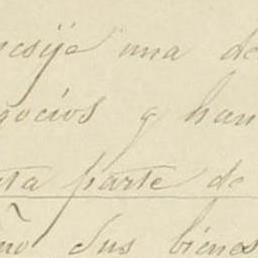 una de
gocios y han
ta parte de
ño sus bienes